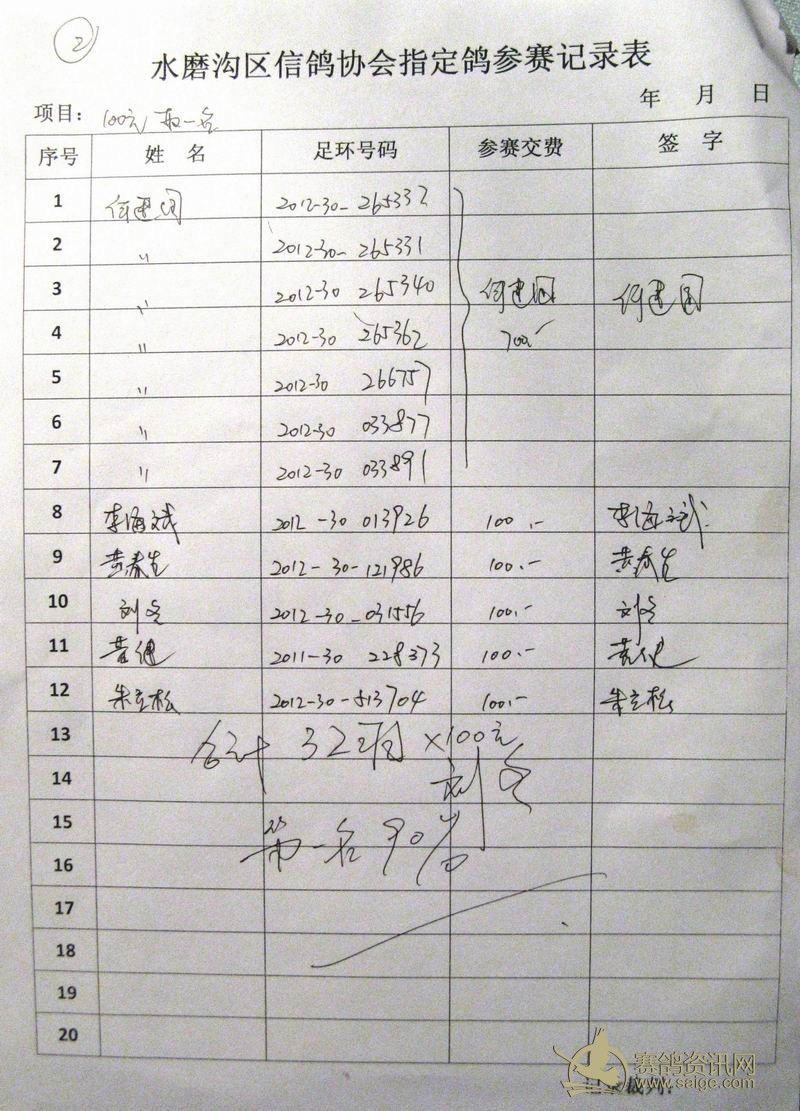 2
水磨沟区信鸽协会指定鸽参赛记录表
年 月 日
项目: 100元 取一名
序号 姓 名 足环号码 参赛交费 签 字
1 何建国 2012-30-265332
2 〃 2012-30-265331
3 〃 2012-30 265340 何建国 何建国
4 〃 2012-30 265362 700.-
5 〃 2012-30 266757
6 〃 2012-30 033877
7 〃 2012-30 033891
8 李海斌 2012-30 013926 100.- 李海斌
9 黄春生 2012-30-121986 100.- 黄春生
10 刘冬 2012-30-031556 100.- 刘冬
11 黄健 2011-30 228373 100.- 黄健
12 朱立松 2012-30-513704 100.- 朱立松
13 合计 32羽×100元
14 刘冬
15
第一名 90%
16
17
18
19
20
赛鸽资讯网
www.saige.com